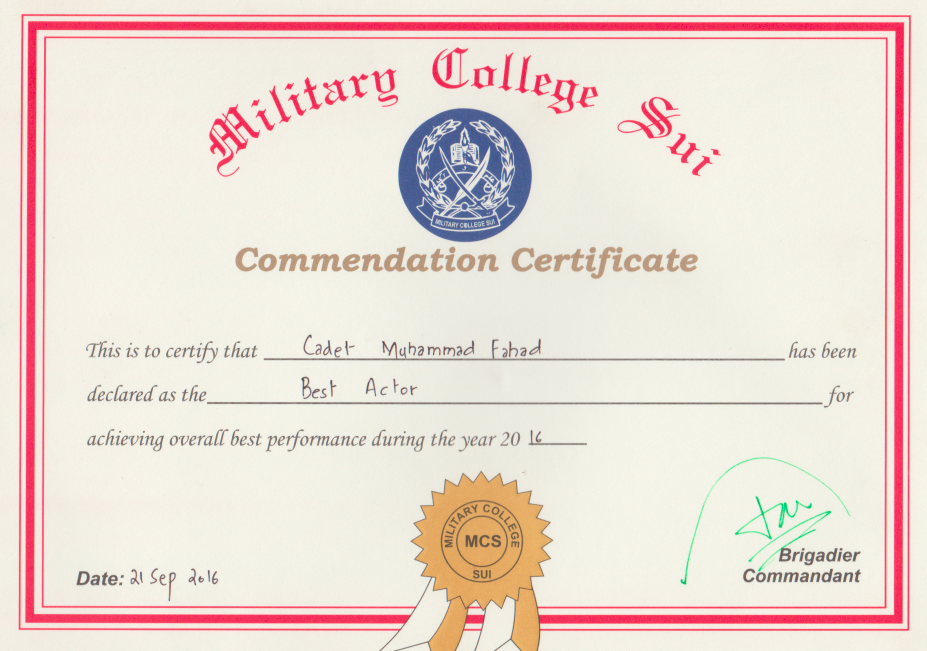 Military College Sui
MILITARY COLLEGE SUI
Commendation Certificate
This is to certify that Cadet Muhammad Fahad has been
declared as the Best Actor for
achieving overall best performance during the year 20 16
MILITARY COLLEGE
MCS
SUI
Brigadier
Date: 21 Sep 2016
Commandant